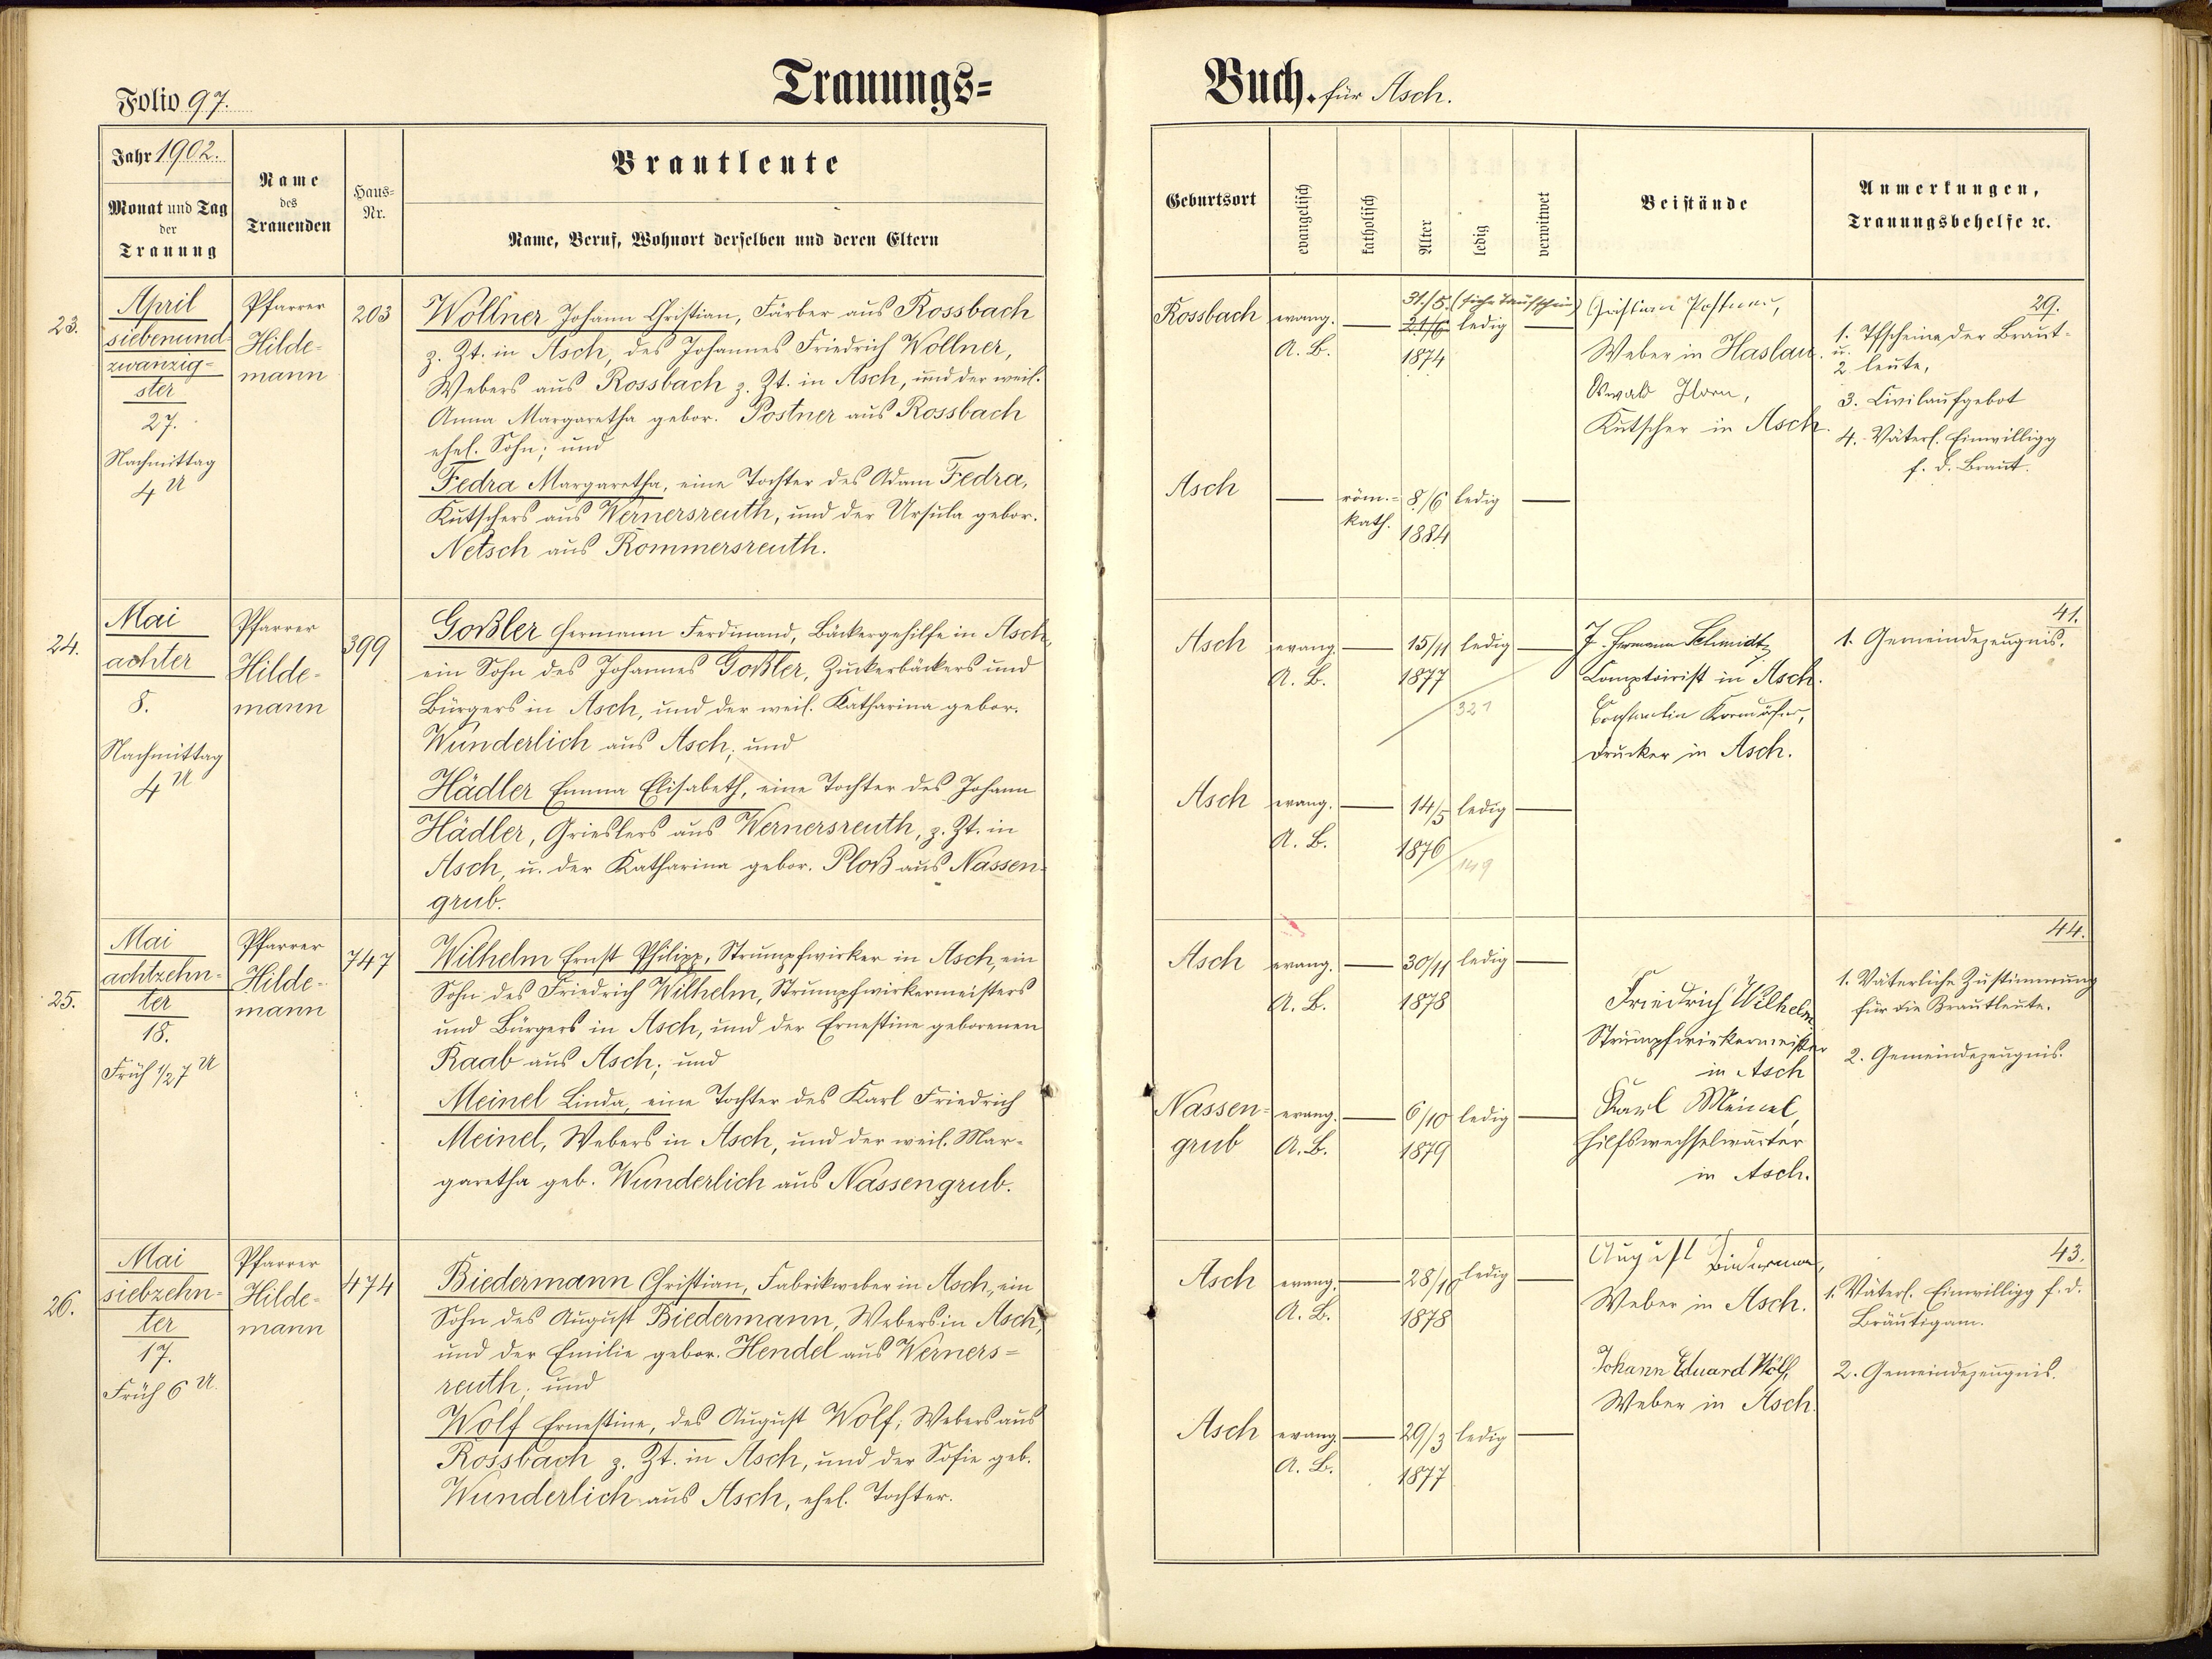 Folio 97.
Trauungs=
Jahr 1902.
Monat und Tag
der
Trauung
Name
des
Trauenden
Haus=
Nr.
Brautleute
Name, Beruf, Wohnort derselben und deren Eltern
23.
April
siebenund-
zwanzig=
ster
27.
Nachmittag
4 U
Pfarrer
Hilde-
mann
203
Wollner Johann Christian, Färber aus Rossbach
z. Zt. in Asch, des Johannes Friedrich Wollner,
Webers aus Rossbach z. Zt. in Asch, und der weil.
Anna Margaretha gebor. Postner aus Rossbach
ehel. Sohn; und
Fedra Margaretha, eine Tochter des Adam Fedra,
Kutschers aus Wernersreuth, und der Ursula gebor.
Netsch aus Rommersreuth.
24.
Mai
achter
8.
Nachmittag
4 U
Pfarrer
Hilde-
mann
399
Goßler Hermann Ferdinand, Bäckergehilfe in Asch,
ein Sohn des Johannes Goßler, Zuckerbäckers und
Bürgers in Asch, und der weil. Katharina gebor.
Wunderlich aus Asch; und
Hädler Emma Elisabeth, eine Tochter des Johann
Hädler, Grieslers aus Wernersreuth, z. Zt. in
Asch, u. der Katharina gebor. Ploß aus Nassen-
grub.
25.
Mai
achtzehn-
ter
18.
Früh 1/2 7 U
Pfarrer
Hilde-
mann
747
Wilhelm Ernst Philipp, Strumpfwirker in Asch, ein
Sohn des Friedrich Wilhelm, Strumpfwirkermeisters
und Bürgers in Asch, und der Ernestine geborenen
Raab aus Asch; und
Meinel Linda, eine Tochter des Karl Friedrich
Meinel, Webers in Asch, und der weil. Mar-
garetha geb. Wunderlich aus Nassengrub.
26.
Mai
siebzehn-
ter
17.
Früh 6 U.
Pfarrer
Hilde-
mann
474
Biedermann Christian, Fabrikweber in Asch, ein
Sohn des August Biedermann, Webers in Asch,
und der Emilie gebor. Hendel aus Werners=
reuth; und
Wolf Ernestine, des August Wolf, Webers aus
Rossbach z. Zt. in Asch, und der Sofie geb.
Wunderlich aus Asch, ehel. Tochter.
Buch. für Asch.
Geburtsort
evangelisch
katholisch
Alter
ledig
verwitwet
Beistände
Anmerkungen,
Trauungsbehelfe ꝛc.
Rossbach evang. — 31./5. (siehe Taufschein)
21/6 ledig —
A. B. 1874
Christian
Weber in Haslau.
Oswald Horn,
Kutscher in Asch.
29.
1. Tfscheine der Braut-
u.
2. leute,
3. Civilaufgebot
4. Väterl. Einwilligg
f. d. Braut.
Asch — röm.= 8./6 ledig —
kath. 1884
Asch evang. — 15/11 ledig —
A. B. 1877
321
J. Hermann Schmidt,
Comptoirist in Asch.
Drucker in Asch.
41.
1. Gemeindezeugnis.
Asch evang. — 14/5 ledig —
A. B. 1876
149
Asch evang. — 30/11 ledig —
A. B. 1878
Friedrich Wilhelm
Strumpfwirkermeister
in Asch
Karl Meinel,
Hilfswechselwärter
in Asch.
44.
1. Väterliche Zustimmung
für die Brautleute.
2. Gemeindezeugnis.
Nassen= evang. — 6/10 ledig —
grub A. B. 1879
Asch evang. — 28/10 ledig —
A. B. 1878
August Biedermann,
Weber in Asch.
Johann Eduard Wolf,
Weber in Asch.
43.
1. Väterl. Einwilligg f. d.
Bräutigam.
2. Gemeindezeugnis.
Asch evang. — 29/3 ledig —
A. B. 1877